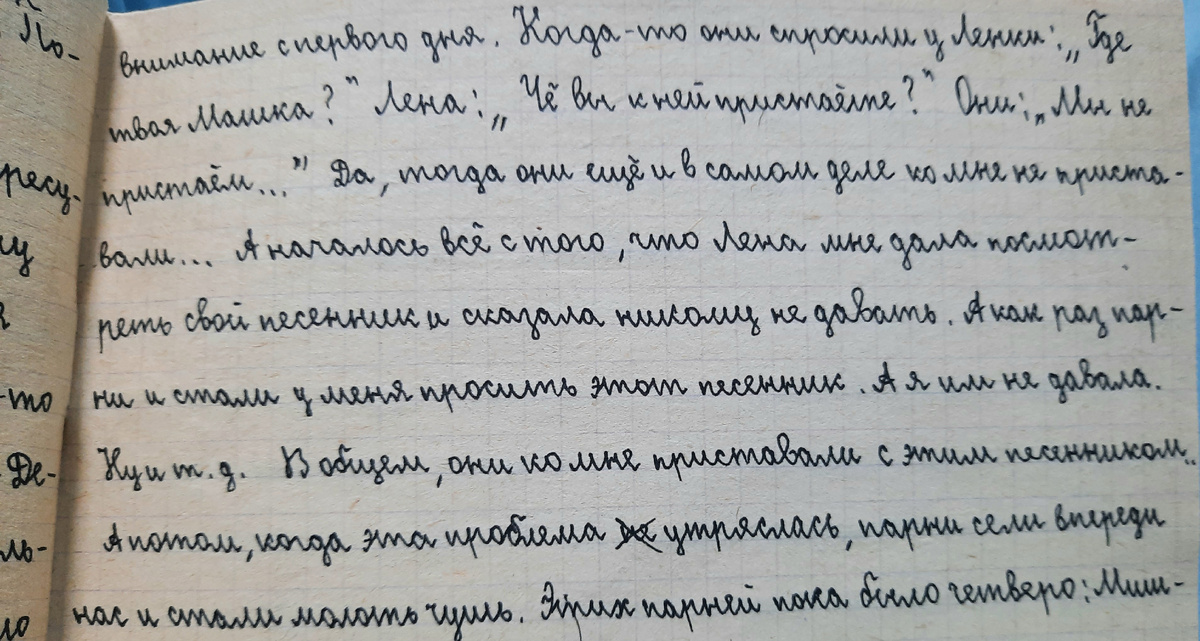 По-
внимание с первого дня. Когда-то они спросили у Ленки: „Где
твоя Машка?" Лена: „Чё вы к ней пристаёте?" Они: „Мы не
ресу- пристаём..." Да, тогда они ещё и в самом деле ко мне не приста-
вали... А началось всё с того, что Лена мне дала посмот-
реть свой песенник и сказала никому не давать. А как раз пар-
-то ни и стали у меня просить этот песенник. А я им не давала.
Де- Ну и т.д. В общем, они ко мне приставали с этим песенником..
ль- А потом, когда эта проблема утряслась, парни сели впереди
нас и стали молоть чушь. Этих парней пока было четверо: Миш-